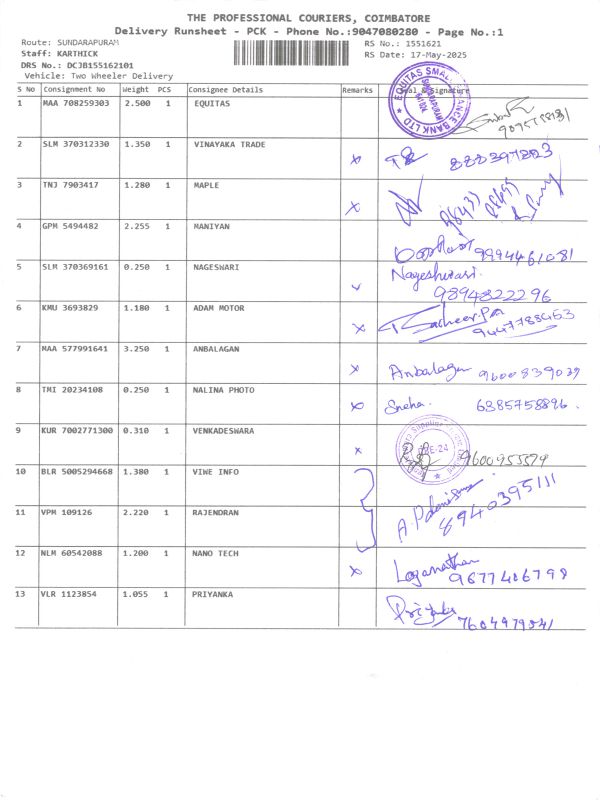 THE PROFESSIONAL COURIERS, COIMBATORE
Delivery Runsheet - PCK - Phone No.:9047080280 - Page No.:1
Route: SUNDARAPURAM RS No.: 1551621
Staff: KARTHICK RS Date: 17-May-2025
DRS No.: DCJB155162101
Vehicle: Two Wheeler Delivery
S No Consignment No Weight PCS Consignee Details Remarks Seal & Signature
1 MAA 708259303 2.500 1 EQUITAS
EQUITAS SMALL FINANCE BANK LTD
SUNDARAPURAM
2 SLM 370312330 1.350 1 VINAYAKA TRADE x
3 TNJ 7903417 1.280 1 MAPLE x
4 GPM 5494482 2.255 1 MANIYAN 9994461081
5 SLM 370369161 0.250 1 NAGESWARI Nageshwari.
9894822296
6 KMU 3693829 1.180 1 ADAM MOTOR x
9447788463
7 MAA 577991641 3.250 1 ANBALAGAN x Anbalagan 9600839039
8 TMI 20234108 0.250 1 NALINA PHOTO x Sneha. 6385758896.
9 KUR 7002771300 0.310 1 VENKADESWARA x 9600955579
10 BLR 5005294668 1.380 1 VIWE INFO
11 VPM 109126 2.220 1 RAJENDRAN 8940395111
12 NLM 60542088 1.200 1 NANO TECH x Loganathan
9677406798
13 VLR 1123854 1.055 1 PRIYANKA Priyanka
7604979041